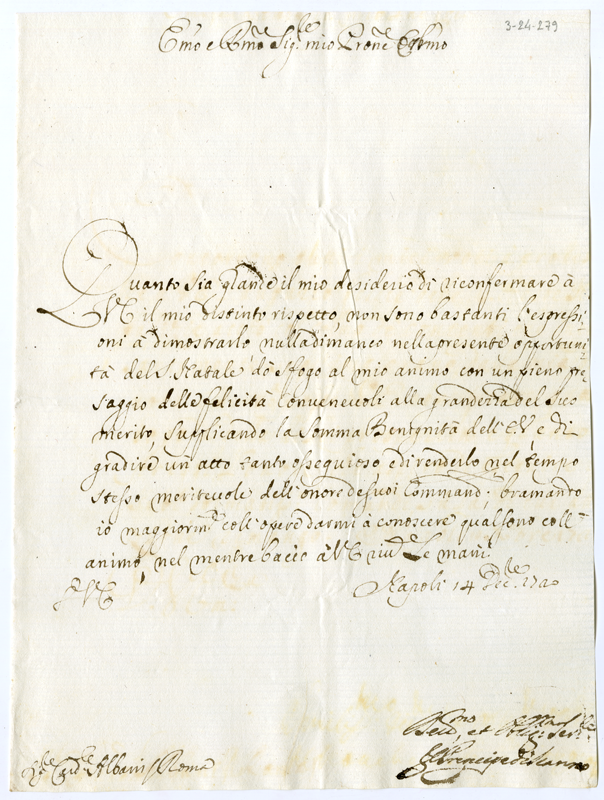 3-24-279
Em̃o e Rm̃o Sig.re mio Prõne Colm̃o
Quanto sia grande il mio desiderio di riconfermare à
V.E. il mio distinto rispetto, non sono bastanti l'espressi-
oni à dimostrarlo nulladimanco nella presente opportuni-
tà del S. Natale dò sfogo al mio animo con un pieno pre-
saggio delle felicità convenevoli alla grandezza del suo
merito, supplicando la somma Benignità dell'E.V. e di
gradire un atto tanto ossequioso e di renderlo nel tempo
stesso meritevole dell'onore de suoi Command.i bramando
io maggiorm.te coll'opere darmi à conoscere qual sono coll'
animo, nel mentre bacio à V.E. riv.te le mani.
Napoli 14 Dec.re 1720
V.E.
Sig.r Card.le Albani / Roma
Dev.mo et Obl.mo Ser.re
Il Principe di